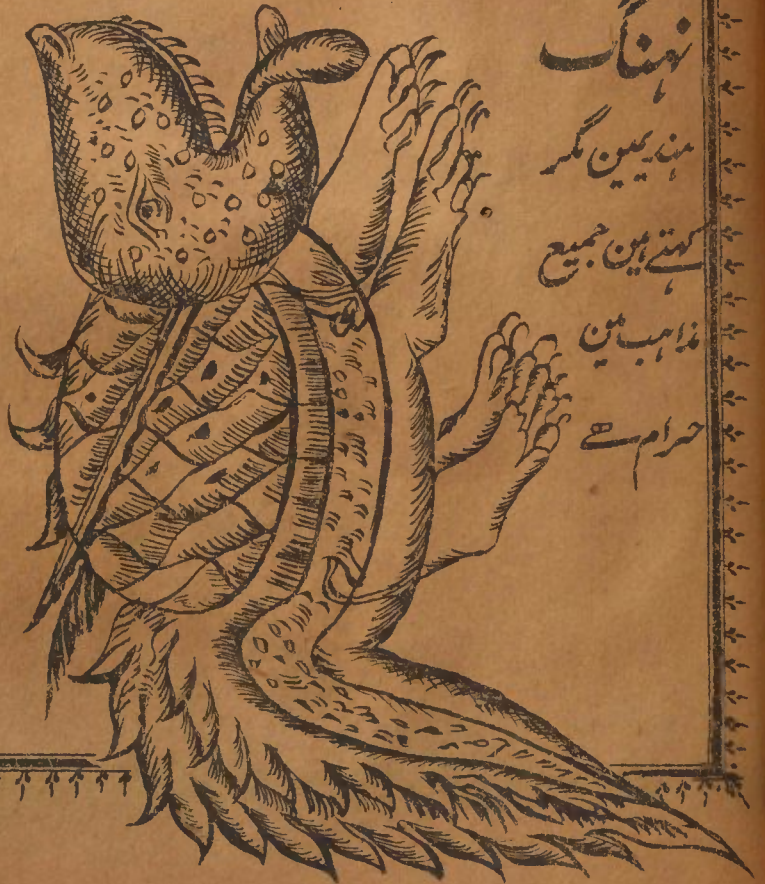 نہنگ
ہندیمین مگر
کہتے ہین جمیع
مذاہب مین
حرام ہے